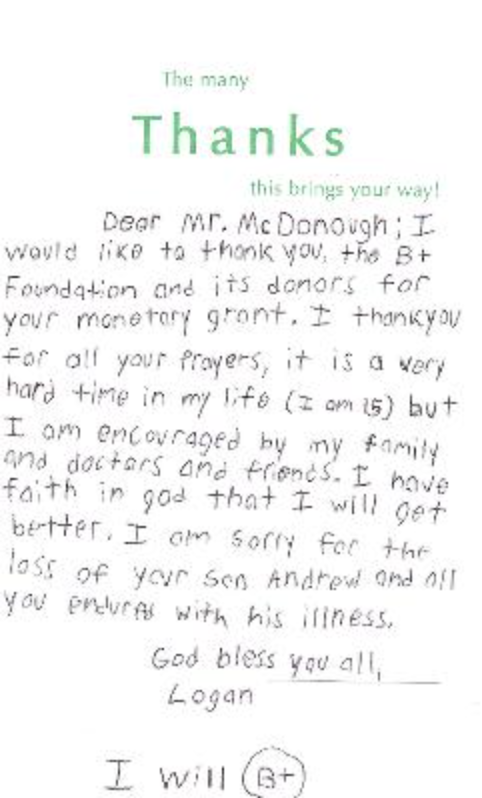 The many
Thanks
this brings your way!
Dear Mr. McDonough; I
would like to thank you, the B+
Foundation and its donors for
your monetary grant. I thankyou
for all your Prayers, it is a very
hard time in my life (I am 15) but
I am encouraged by my family
and doctors and friends. I have
faith in god that I will get
better. I am sorry for the
loss of your son Andrew and all
you endured with his illness.
God bless you all,
Logan
I will B+